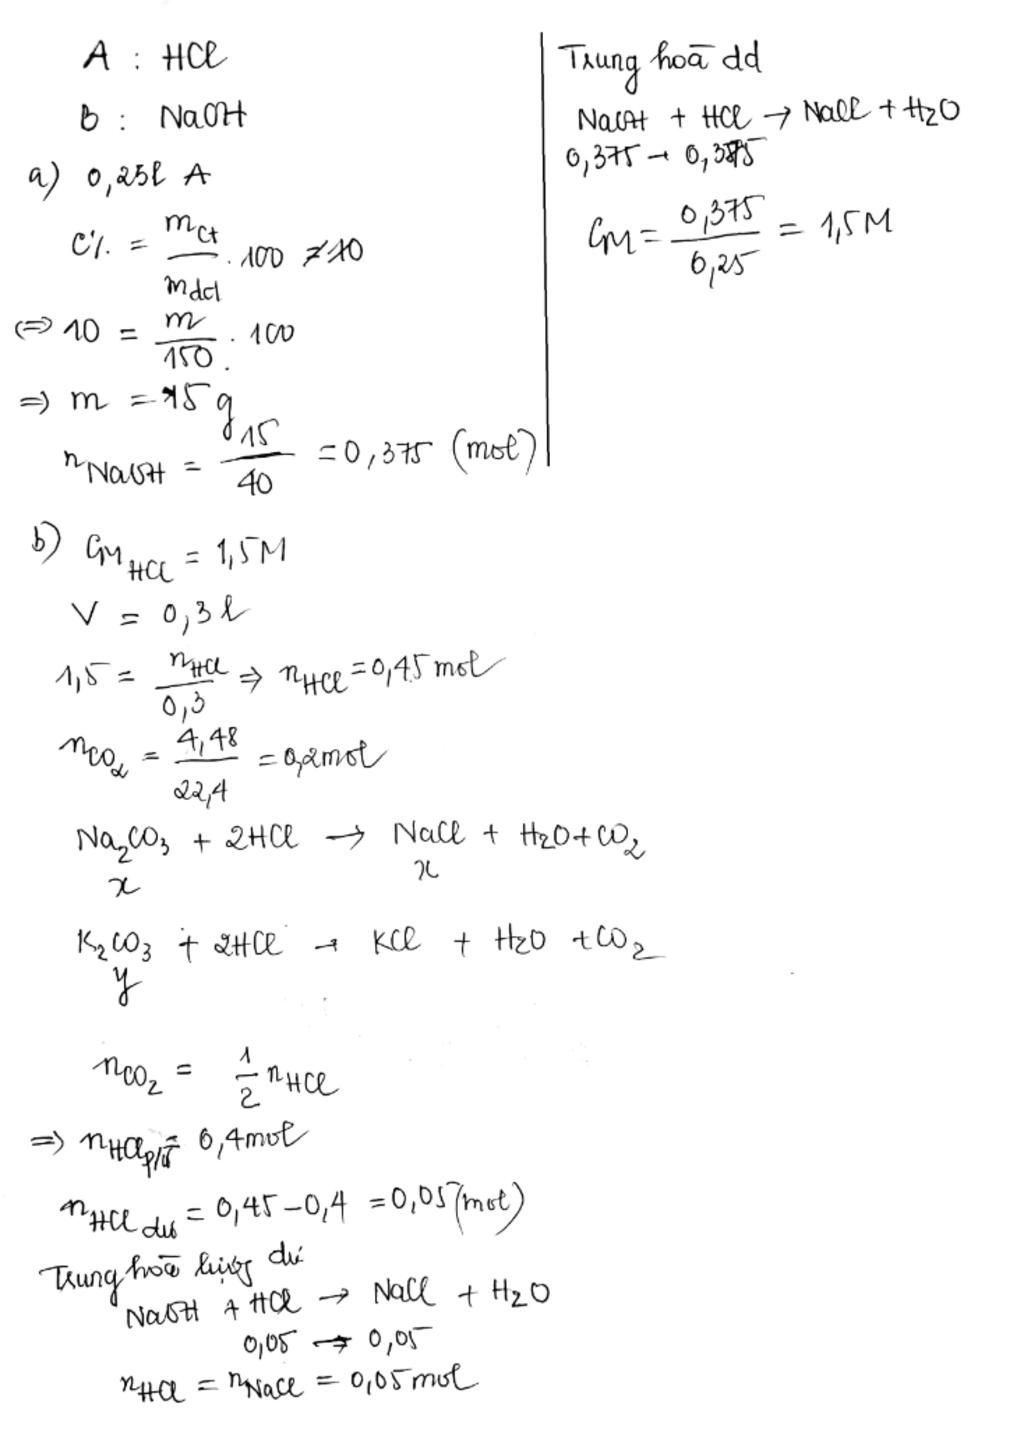 A : HCl
B : NaOH
a) 0,25l A
C% = mct / mdd . 100 = 10
⇔ 10 = m / 150 . 100
⇒ m = 15 g
nNaOH = 15 / 40 = 0,375 (mol)
Trung hoà dd
NaOH + HCl → NaCl + H2O
0,375 → 0,375
CM = 0,375 / 0,25 = 1,5M
b) CM HCl = 1,5M
V = 0,3 l
1,5 = nHCl / 0,3 ⇒ nHCl = 0,45 mol
nCO2 = 4,48 / 22,4 = 0,2mol
Na2CO3 + 2HCl → NaCl + H2O + CO2
x x
K2CO3 + 2HCl → KCl + H2O + CO2
y
nCO2 = 1/2 nHCl
⇒ nHCl p/ứ = 0,4mol
nHCl dư = 0,45 - 0,4 = 0,05 (mol)
Trung hoà lượng dư
NaOH + HCl → NaCl + H2O
0,05 → 0,05
nHCl = nNaCl = 0,05mol